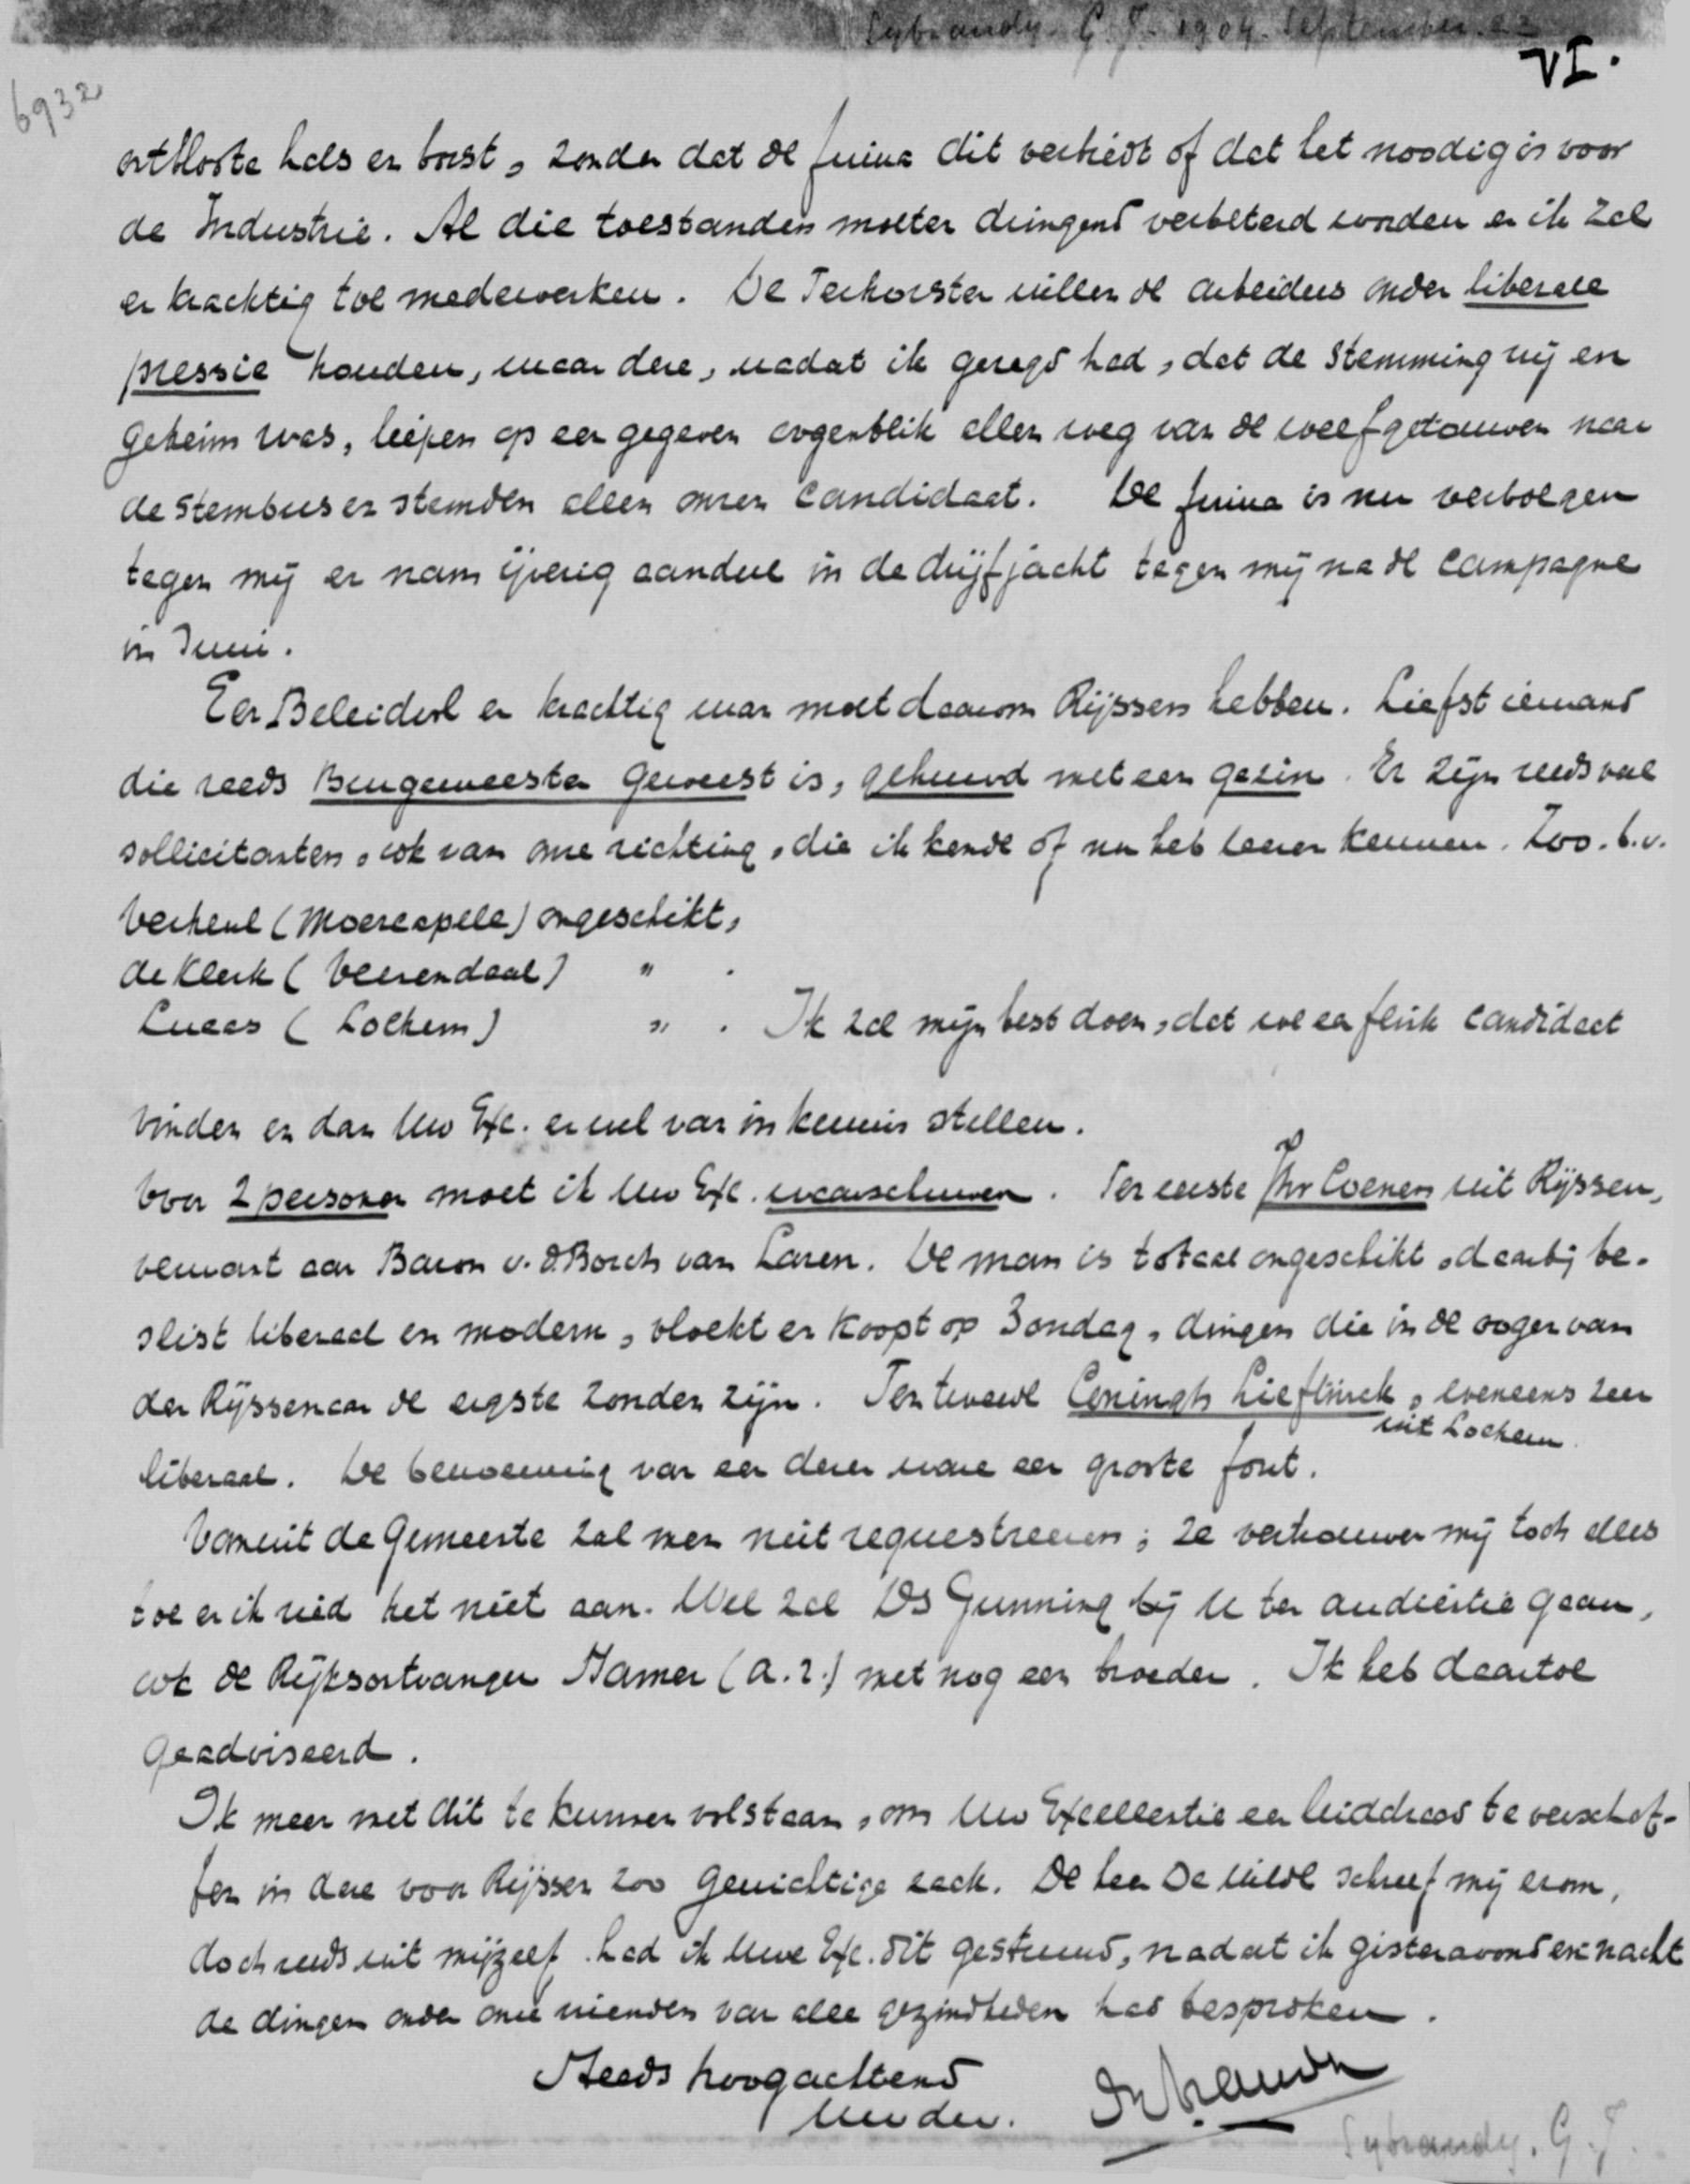 Sybrandy. G. J. 1904. September. 22
VI.
6932
ontbloote hals en borst, zonder dat de firma dit verbiedt of dat het noodig is voor
de Industrie. Al die toestanden moeten dringend verbeterd worden en ik zal
er krachtig toe medewerken. De Terhorsten willen de arbeiders onder liberale
pressie houden, maar deze, nadat ik gezegd had, dat de stemming vrij en
geheim was, liepen op een gegeven oogenblik allen weg van de weefgetouwen naar
de stembus en stemden allen onzen candidaat. De firma is nu verbolgen
tegen mij en nam ijverig aandeel in de drijfjacht tegen mij na de campagne
in Juni.
Een Beleidvol en krachtig man moet daarom Rijssen hebben. Liefst iemand
die reeds Burgemeester geweest is, gehuwd met een gezin. Er zijn reeds veel
sollicitanten, ook van onze richting, die ik kende of nu heb leeren kennen. Zoo. b.v.
Verheul (Moercapelle) ongeschikt,
de Klerk (Veenendaal) " .
Lucas (Lochem) " . Ik zal mijn best doen, dat we een flink candidaat
vinden en dan Uw Exc. er wel van in kennis stellen.
Voor 2 personen moet ik Uw Exc. waarschuwen. Ten eerste Jhr Coenen uit Rijssen,
verwant aan Baron v. d. Borch van Laren. De man is totaal ongeschikt, daarbij be-
slist liberaal en modern, vloekt en koopt op Zondag, dingen die in de oogen van
den Rijssenaar de ergste zonden zijn. Ten tweede Coningh Liefsinck, eveneens zeer
uit Lochem.
liberaal. De benoeming van een dezer ware een groote fout.
Vanuit de Gemeente zal men niet requestreeren; ze vertrouwen mij toch alles
toe en ik ried het niet aan. Wel zal Ds Gunning bij U ter audiëntie gaan,
ook de Rijksontvanger Hamer (a.r.) met nog een broeder. Ik heb daartoe
geadviseerd.
Ik meen met dit te kunnen volstaan, om Uw Excellentie een leiddraad te verschaf-
fen in deze voor Rijssen zoo gewichtige zaak. De heer De Wilde schreef mij erom,
doch reeds uit mijzelf had ik Uwe Exc. dit gestuurd, nadat ik gisteravond en nacht
de dingen onder onze vrienden van alle gezindheden had besproken.
Steeds hoogachtend
Uw dw. Sybrandy
Sybrandy. G. J.